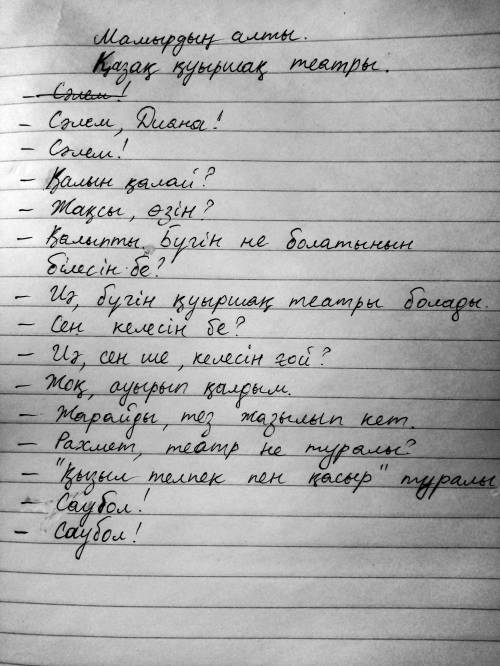 Мамырдың алты.
Қазақ қуыршақ театры.
- Сәлем!
- Сәлем, Диана!
- Сәлем!
- Қалын қалай?
- Жақсы, өзін?
- Қалыпты. Бүгін не болатынын
білесін бе?
- Иә, бүгін қуыршақ театры болады.
- Сен келесін бе?
- Иә, сен ше, келесін ғой?
- Жоқ, ауырып қалдым.
- Жарайды, тез жазылып кет.
- Рахмет, театр не туралы?
- "Қызыл телпек пен қасыр" туралы
- Саубол!
- Саубол!